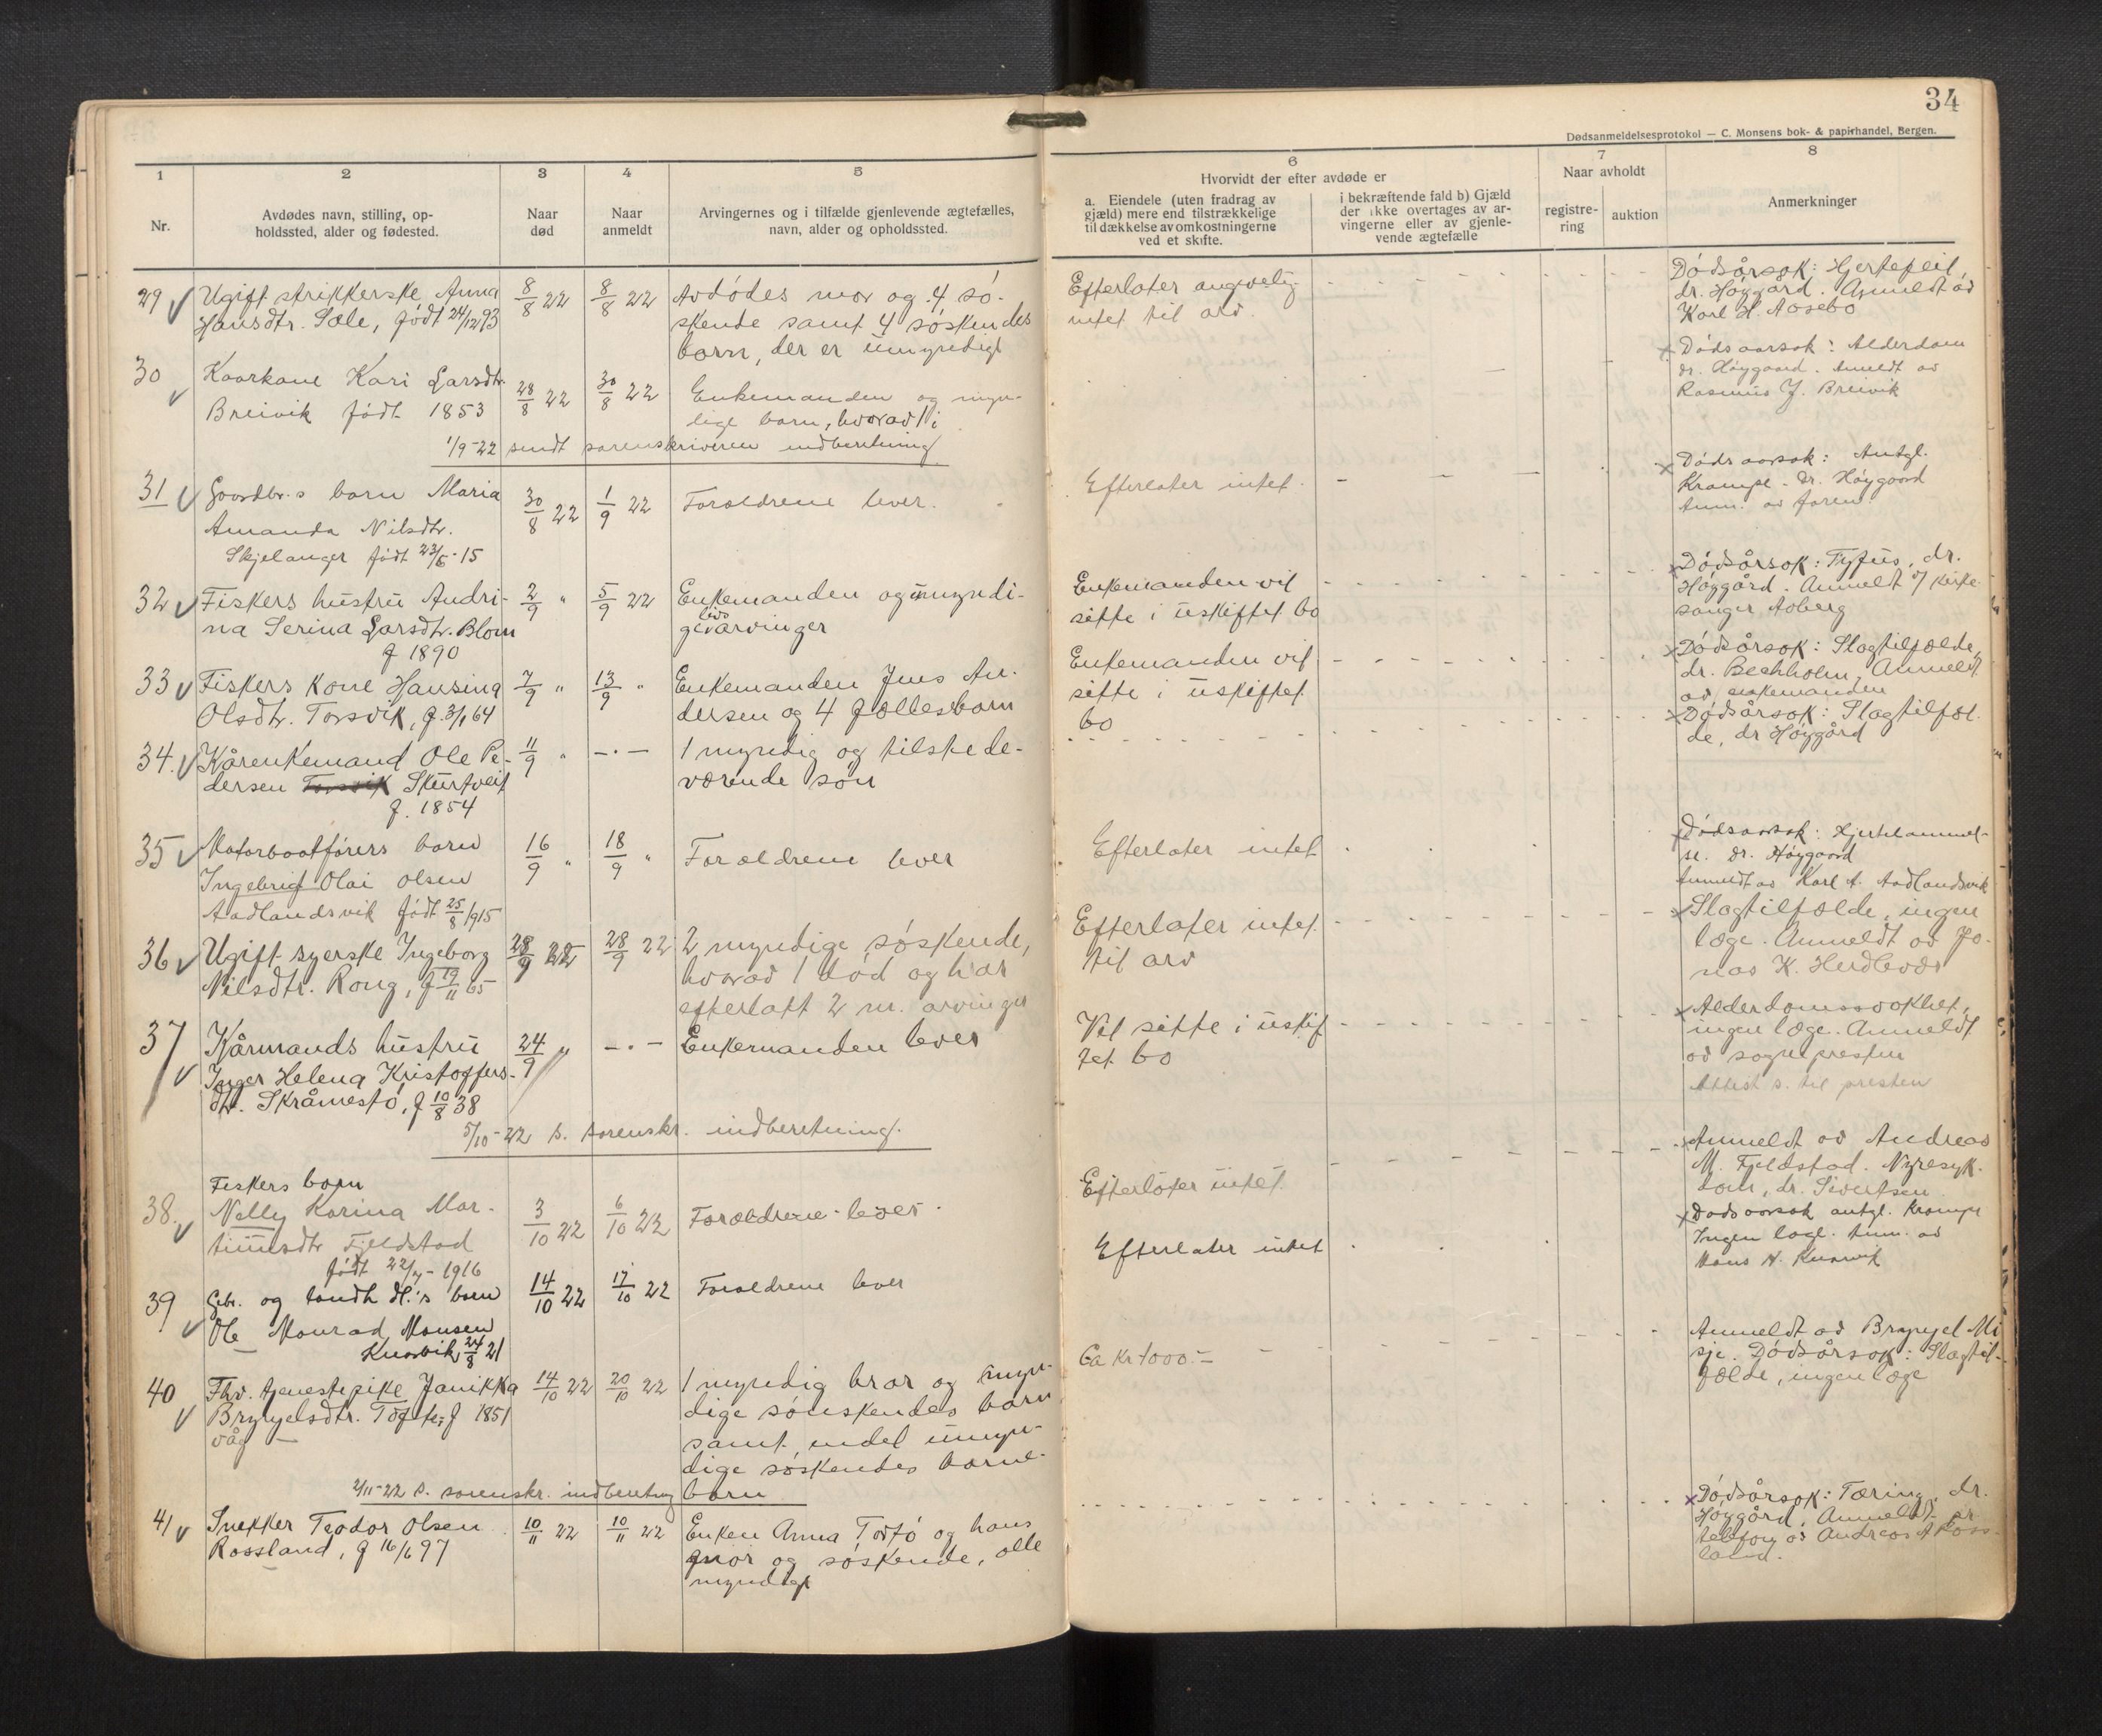 34
Dødsanmeldelsesprotokol — C. Monsens bok- & papirhandel, Bergen.
1
Nr.
2
Avdødes navn, stilling, op-
holdssted, alder og fødested.
3
Naar
død
4
Naar
anmeldt
5
Arvingernes og i tilfælde gjenlevende ægtefælles,
navn, alder og opholdssted.
6
Hvorvidt der efter avdøde er
a. Eiendele (uten fradrag av
gjæld) mere end tilstrækkelige
til dækkelse av omkostningerne
ved et skifte.
i bekræftende fald b) Gjæld
der ikke overtages av ar-
vingerne eller av gjenle-
vende ægtefælle
7
Naar avholdt
registre-
ring
auktion
8
Anmerkninger
29 Ugift strikkerske Anna
Hansdtr. Sæle, født 24/12 93
8/8 22
8/8 22
Avdødes mor og 4 sø-
skende samt 4 søskendes
børn, der er umyndige
Efterlater angivelig
intet til arv.
Dødsårsak: Hjertefeil,
dr. Høygård. Anmeldt av
Karl H. Aosebø
30 Kaarkone Kari Larsdtr.
Breivik født 1853
28/8 22
30/8 22
Enkemanden og myn-
dige barn, hvorav 1 i
Dødsaarsak: Alderdom
dr. Høygaard. Anmeldt av
Rasmus J. Breivik
1/9-22 sendt sorenskriveren indberetning
31 Gaardbr.s barn Maria
Amanda Nilsdtr.
Skjelanger født 23/6-15
30/8 22
1/9 22
Forældrene lever.
Efterlater intet.
Dødsaarsak: Antgl.
Krampe. Dr. Høygaard
Anm. av faren.
32 Fiskers hustru Andri-
na Serina Larsdtr. Blom
f 1890
2/9 "
5/9 22
Enkemanden og umyndi-
ge livsarvinger
Enkemanden vil
sitte i uskiftet bo
Dødsårsak: Tyfus, dr.
Høygård. Anmelt v/ kirke-
sanger Aoberg
33 Fiskers kone Hansina
Olsdtr. Torsvik, f. 3/1 64
7/9 "
13/9 "
Enkemanden Jens An-
dersen og 4 fællesbarn
Enkemanden vil
sitte i uskiftet
bo
Dødsårsak: Slagtilfælde,
dr. Bechholm, Anmeldt
av enkemanden
34. Kårenkemand Ole Pe-
dersen Torsvik Skurtveit
f. 1854
11/9 "
— . —
1 myndig og tilstede-
værende søn
Dødsårsak: Slagtilfæl-
de, dr Høygård
35 Motorbaatførers barn
Ingebrigt Olai Olsen
Aadlandsvik født 25/8 1915
16/9 "
18/9 "
Forældrene lever
Efterlater intet
Dødsaarsak: Hjertelammel-
se. dr. Høygaard
Anmeldt av Karl A. Aadlandsvik
36 Ugift syerske Ingeborg
Nilsdtr. Rong, f 19/11 65
28/9 22
28/9 22
2 myndige søskende,
hvorav 1 død og har
efterlatt 2 m. arvinger
Efterlater intet
til arv
Slagtilfælde, ingen
læge. Anmeldt av Jo-
nas K. Herdlevær
37 Kårmands hustru
Inger Helena Kristoffers-
dtr. Skråmestø, f 10/8 38
24/9 "
— . —
Enkemanden lever
Vil sitte i uskif
tet bo
Alderdomssvakhet,
ingen læge. Anmeldt
av sognepresten
Attest s. til presten
5/10-22 s. sorenskr. indberetning.
38. Fiskers barn
Nelly Karina Mar-
tinusdtr Fjeldstad
født 22/7-1916
3/10 22
6/10 22
Forældrene lever.
Efterlater intet.
Anmeldt av Andreas
M. Fjeldstad. Nyresyk-
dom, dr. Sivertsen
39 Gbr. og landh dl.'s barn
Ole Monrad Monsen
Kuovik 24/8 21
14/10 22
17/10 22
Forældrene lever
Efterlater intet
Dødsaarsak antgl. Krampe
Ingen læge. Anm. av
Mons N. Kuovik
40 Fhv. tjenestepike Janikka
Brynjelsdtr. Tofte- f 1851
våg
14/10 22
20/10 22
1 myndig bror og myn-
dige søskendes barn
samt endel umyn-
dige søskendes barne-
barn
Ca Kr 1000.—
Anmeldt av Brynjel Mi
sje. Dødsårsak: Slagtil-
fælde, ingen læge
2/11-22 s. sorenskr. indberetning
41 Snekker Teodor Olsen
Rossland, f 16/6 97
10/11 22
10/11 22
Enken Anna Toftø og hans
mor og søskende, alle
myndige
Dødsårsak: Tæring, dr.
Høygård, Anmeldt pr
telefon av Andreas A Ross-
land.